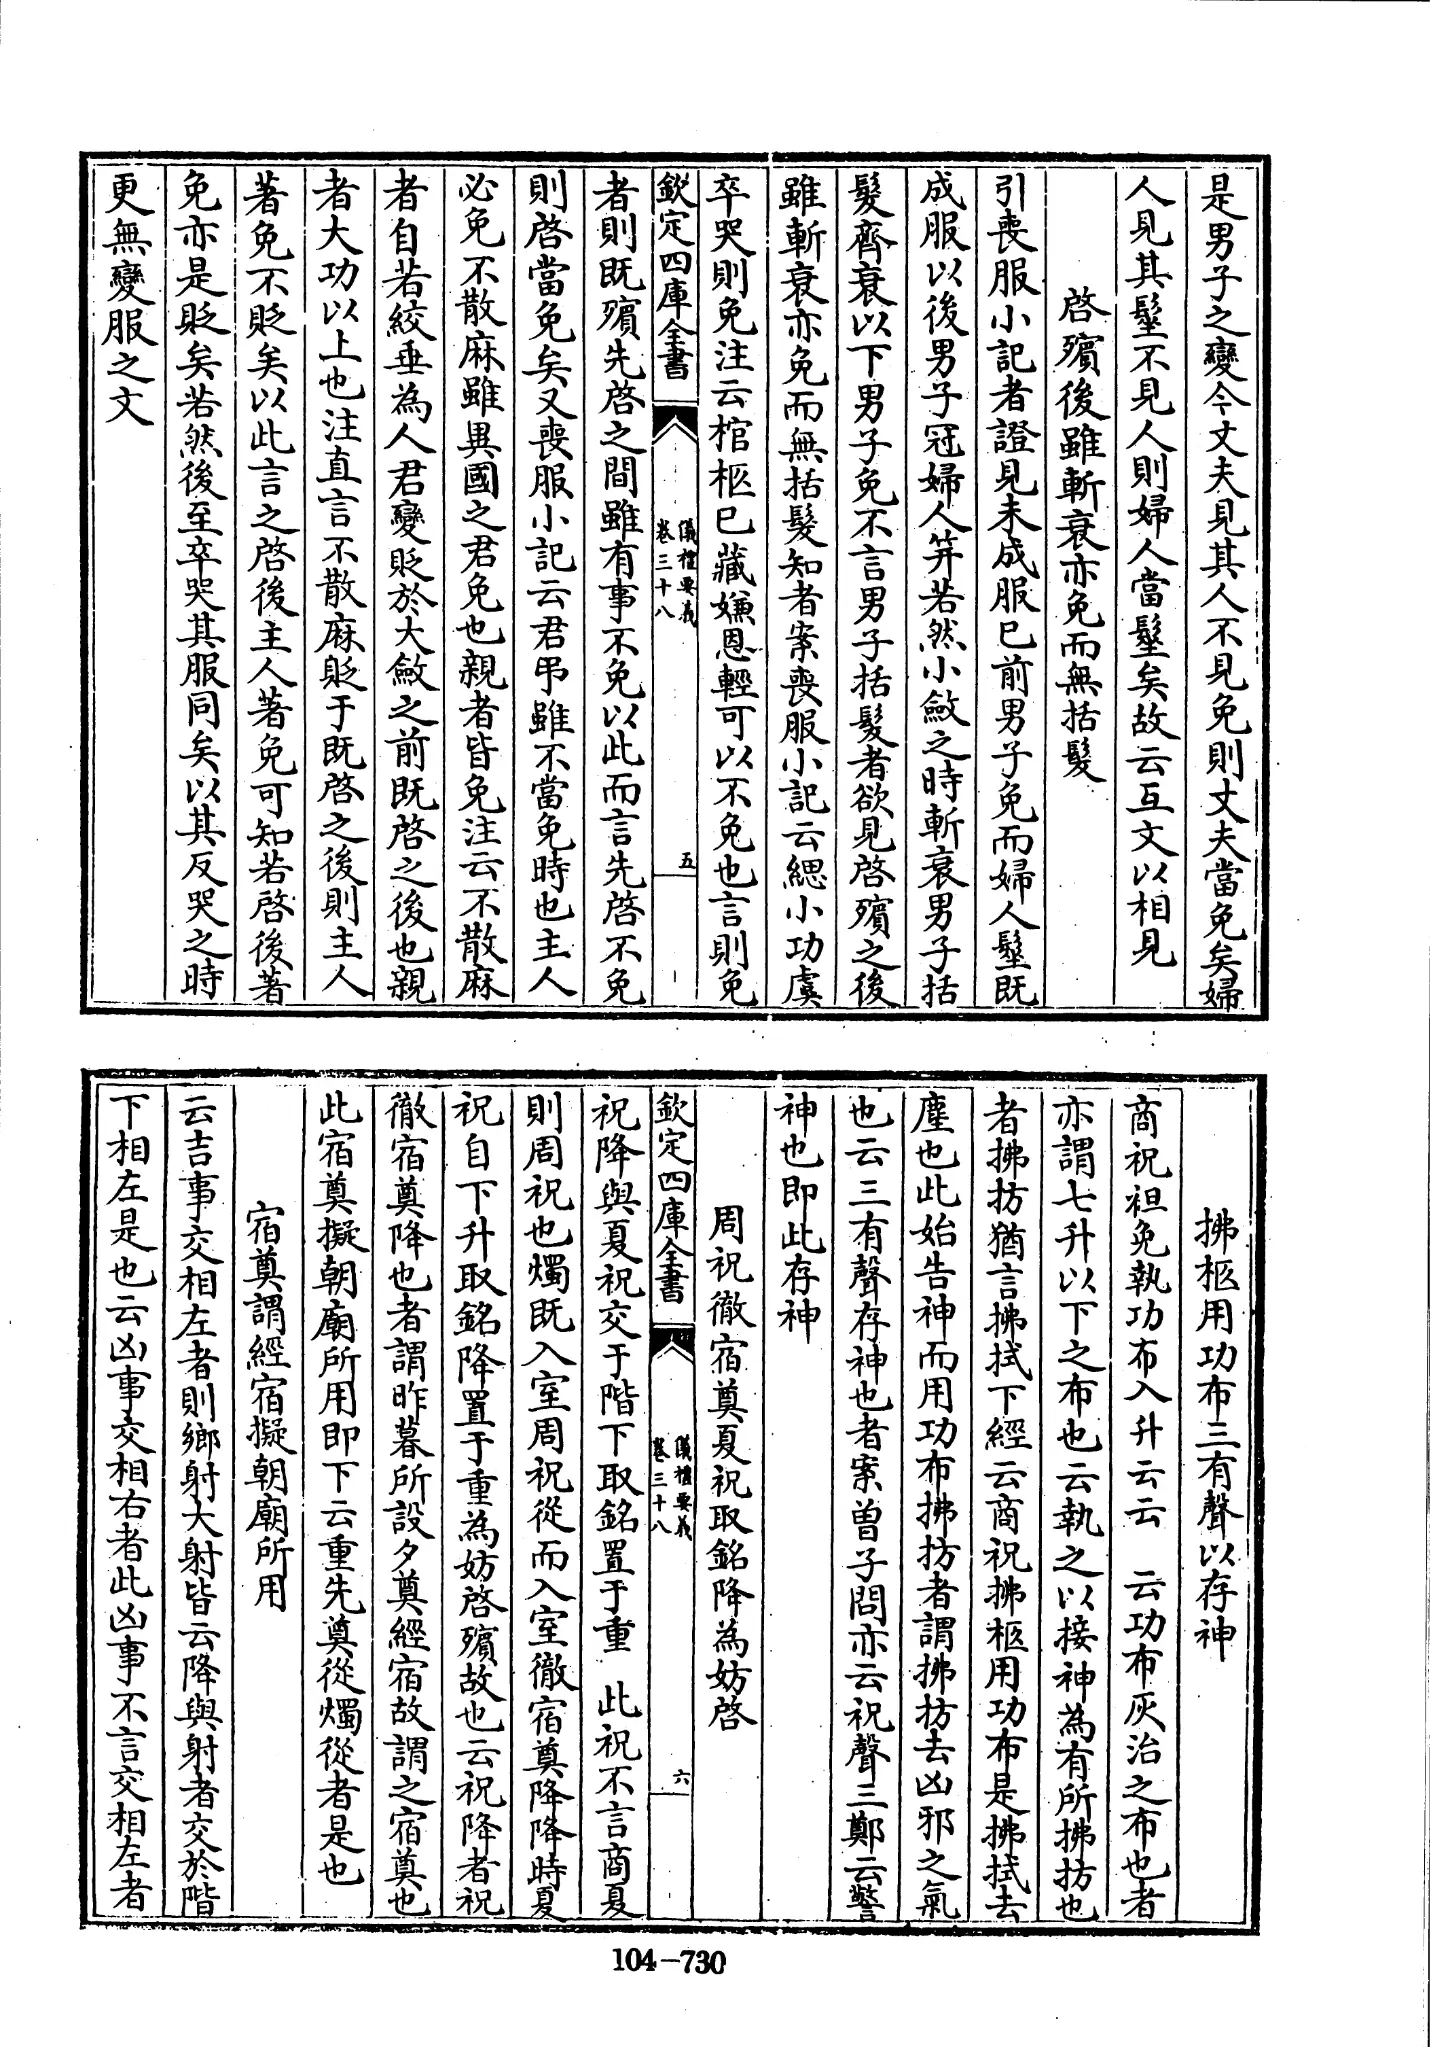 是男子之變今丈夫見其人不見免則丈夫當免矣婦
人見其髽不見人則婦人當髽矣故云互文以相見
啓殯後雖斬衰亦免而無括髮
引喪服小記者證見未成服已前男子免而婦人髽既
成服以後男子冠婦人笄若然小斂之時斬衰男子括
髮齊衰以下男子免不言男子括髮者欲見啓殯之後
雖斬衰亦免而無括髮知者案喪服小記云緦小功虞
卒哭則免注云棺柩已藏嫌恩輕可以不免也言則免
欽定四庫全書
儀禮要義
卷三十八
五
者則既殯先啓之間雖有事不免以此而言先啓不免
則啓當免矣又喪服小記云君弔雖不當免時也主人
必免不散麻雖異國之君免也親者皆免注云不散麻
者自若絞垂為人君變貶於大斂之前既啓之後也親
者大功以上也注直言不散麻貶于既啓之後則主人
著免不貶矣以此言之啓後主人著免可知若啓後著
免亦是貶矣若然後至卒哭其服同矣以其反哭之時
更無變服之文
拂柩用功布三有聲以存神
商祝袒免執功布入升云云 云功布灰治之布也者
亦謂七升以下之布也云執之以接神為有所拂扐也
者拂扐猶言拂拭下經云商祝拂柩用功布是拂拭去
塵也此始告神而用功布拂扐者謂拂扐去凶邪之氣
也云三有聲存神也者案曾子問亦云祝聲三鄭云警
神也即此存神
周祝徹宿奠夏祝取銘降為妨啓
欽定四庫全書
儀禮要義
卷三十八
六
祝降與夏祝交于階下取銘置于重 此祝不言商夏
則周祝也燭既入室周祝從而入室徹宿奠降降時夏
祝自下升取銘降置于重為妨啓殯故也云祝降者祝
徹宿奠降也者謂昨暮所設夕奠經宿故謂之宿奠也
此宿奠擬朝廟所用即下云重先奠從燭從者是也
宿奠謂經宿擬朝廟所用
云吉事交相左者則鄉射大射皆云降與射者交於階
下相左是也云凶事交相右者此凶事不言交相左者
104-730